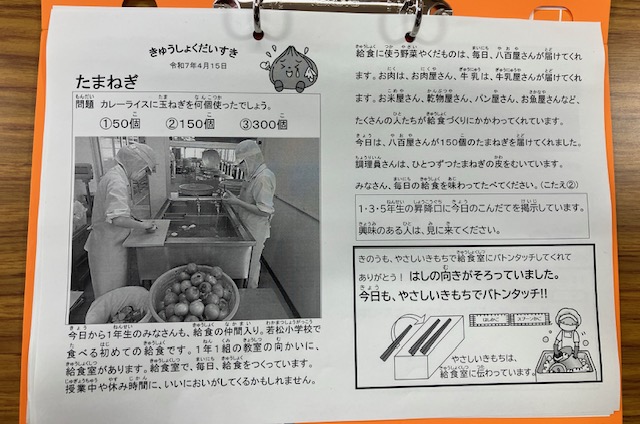 きゅうしょくだいすき
令和7年4月15日
たまねぎ
問題 カレーライスに玉ねぎを何個使ったでしょう。
①50個 ②150個 ③300個
今日から1年生のみなさんも、給食の仲間入り。若松小学校で
食べる初めての給食です。1年1組の教室の向かいに、
給食室があります。給食室で、毎日、給食をつくっています。
授業中や休み時間に、いいにおいがしてくるかもしれません。
給食に使う野菜やくだものは、毎日、八百屋さんが届けてくれ
ます。お肉は、お肉屋さん、牛乳は、牛乳屋さんが届けてくれ
ます。お米屋さん、乾物屋さん、パン屋さん、お魚屋さんなど、
たくさんの人たちが給食づくりにかかわってくれています。
今日は、八百屋さんが150個のたまねぎを届けてくれました。
調理員さんは、ひとつずつたまねぎの皮をむいています。
みなさん、毎日の給食を味わってたべてください。(こたえ②)
1・3・5年生の昇降口に今日のこんだてを掲示しています。
興味のある人は、見に来てください。
きのうも、やさしいきもちで給食室にバトンタッチしてくれて
ありがとう! はしの向きがそろっていました。
今日も、やさしいきもちでバトンタッチ!!
はしかご スプーンかご
やさしいきもちは、
給食室に伝わっています。